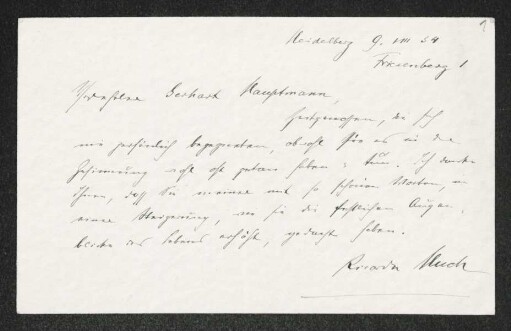 Heidelberg 9. VIII 34
Frauenberg 1
Verehrter Gerhart Hauptmann,
Zeitgenossen, die sich
nie persönlich begegneten, obwohl sie es in der
Gesinnung wohl oft getan haben: Ich danke
Ihnen, daß Sie meiner mit so schönen Worten, in
einer Steigerung, wie sie die festlichen Augen-
blicke des Lebens erhöht, gedacht haben.
Ricarda Huch